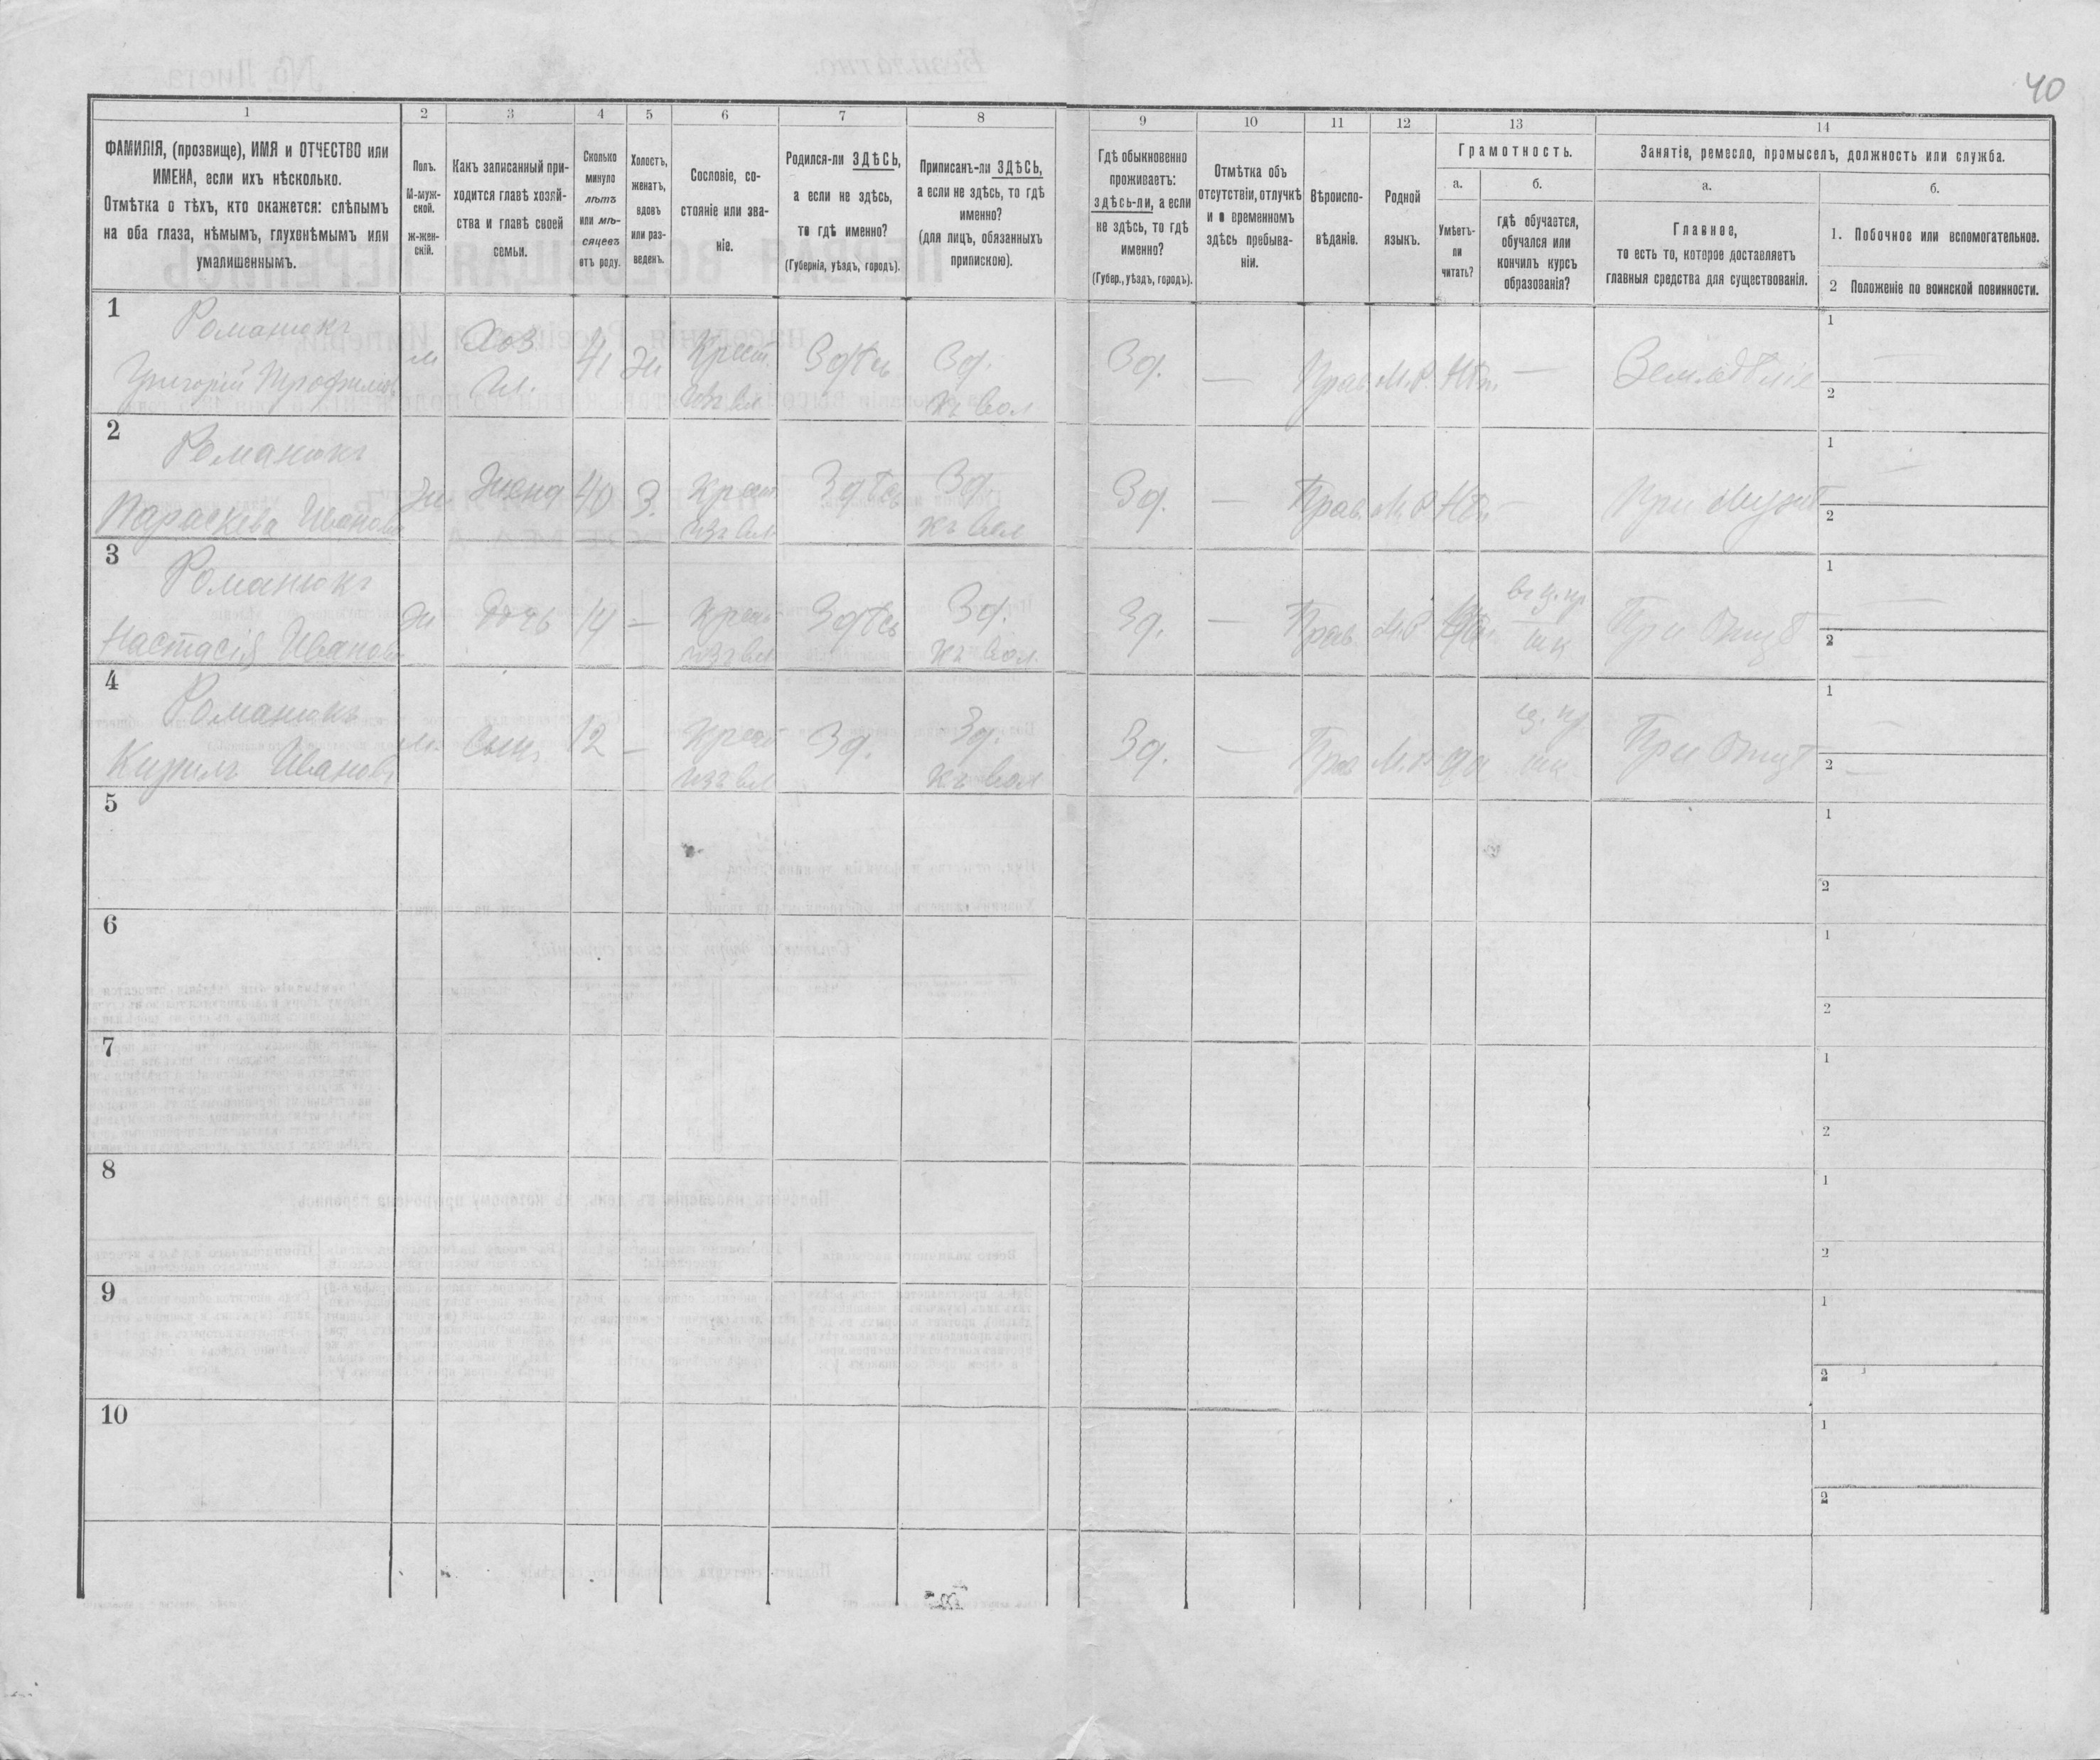 40
1
2
3
4
5
6
7
8
9
10
11
12
13
14
ФАМИЛІЯ, (прозвище), ИМЯ и ОТЧЕСТВО или
ИМЕНА, если ихъ нѣсколько.
Отмѣтка о тѣхъ, кто окажется: слѣпымъ
на оба глаза, нѣмымъ, глухонѣмымъ или
умалишеннымъ.
Полъ.
М-муж-
ской.
ж-жен-
скій.
Какъ записанный при-
ходится главѣ хозяй-
ства и главѣ своей
семьи.
Сколько
минуло
лѣтъ
или мѣ-
сяцевъ
отъ роду.
Холостъ,
женатъ,
вдовъ
или раз-
веденъ.
Сословіе, со-
стояніе или зва-
ніе.
Родился-ли ЗДѢСЬ,
а если не здѣсь,
то гдѣ именно?
(Губернія, уѣздъ, городъ).
Приписанъ-ли ЗДѢСЬ,
а если не здѣсь, то гдѣ
именно?
(для лицъ, обязанныхъ
припискою).
Гдѣ обыкновенно
проживаетъ:
здѣсь-ли, а если
не здѣсь, то гдѣ
именно?
(Губер., уѣздъ, городъ).
Отмѣтка объ
отсутствіи, отлучкѣ
и о временномъ
здѣсь пребыва-
ніи.
Вѣроиспо-
вѣданіе.
Родной
языкъ.
Грамотность.
а.
Умѣетъ-
ли
читать?
б.
гдѣ обучается,
обучался или
кончилъ курсъ
образованія?
Занятіе, ремесло, промыселъ, должность или служба.
а.
Главное,
то есть то, которое доставляетъ
главныя средства для существованія.
б.
1. Побочное или вспомогательное.
2 Положеніе по воинской повинности.
1
Романюкъ
Григорій Трофимовъ
м
Хоз
41
Ж
Крест.
изъ вл
Здѣсь
Зд.
къ вол
Зд.
—
Прав.
М.Р.
Нѣт.
—
Земледѣліе
1
2
2
Романюкъ
Параскева Иванова
Ж
Жена
40
З.
Крест
изъ вл.
Здѣсь
Зд.
къ вол
Зд.
—
Прав.
М.Р.
Нѣт
—
При мужѣ
1
2
3
Романюкъ
Настасія Иванова
Ж
Дочь
14
—
Крест
изъ вл
Здѣсь
Зд.
къ вол.
Зд.
—
Прав.
М.Р
въ ц. пр
шк
При отцѣ
1
2
4
Романюкъ
Кирилъ Ивановъ
м.
Сынъ
12
—
Крест
изъ вл
Зд.
Зд.
къ вол
Зд.
—
Прав
М.Р
да
ц. пр
шк
При отцѣ
1
2
5
1
2
6
1
2
7
1
2
8
1
2
9
1
2
10
1
2